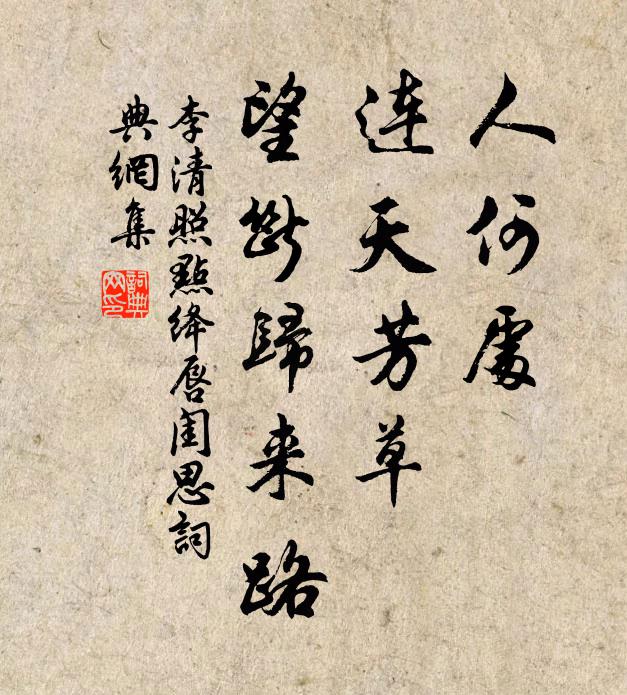 人何處
連天芳草
望斷歸来路
李清照點绛唇閨思詞
典網集
詞典
网印